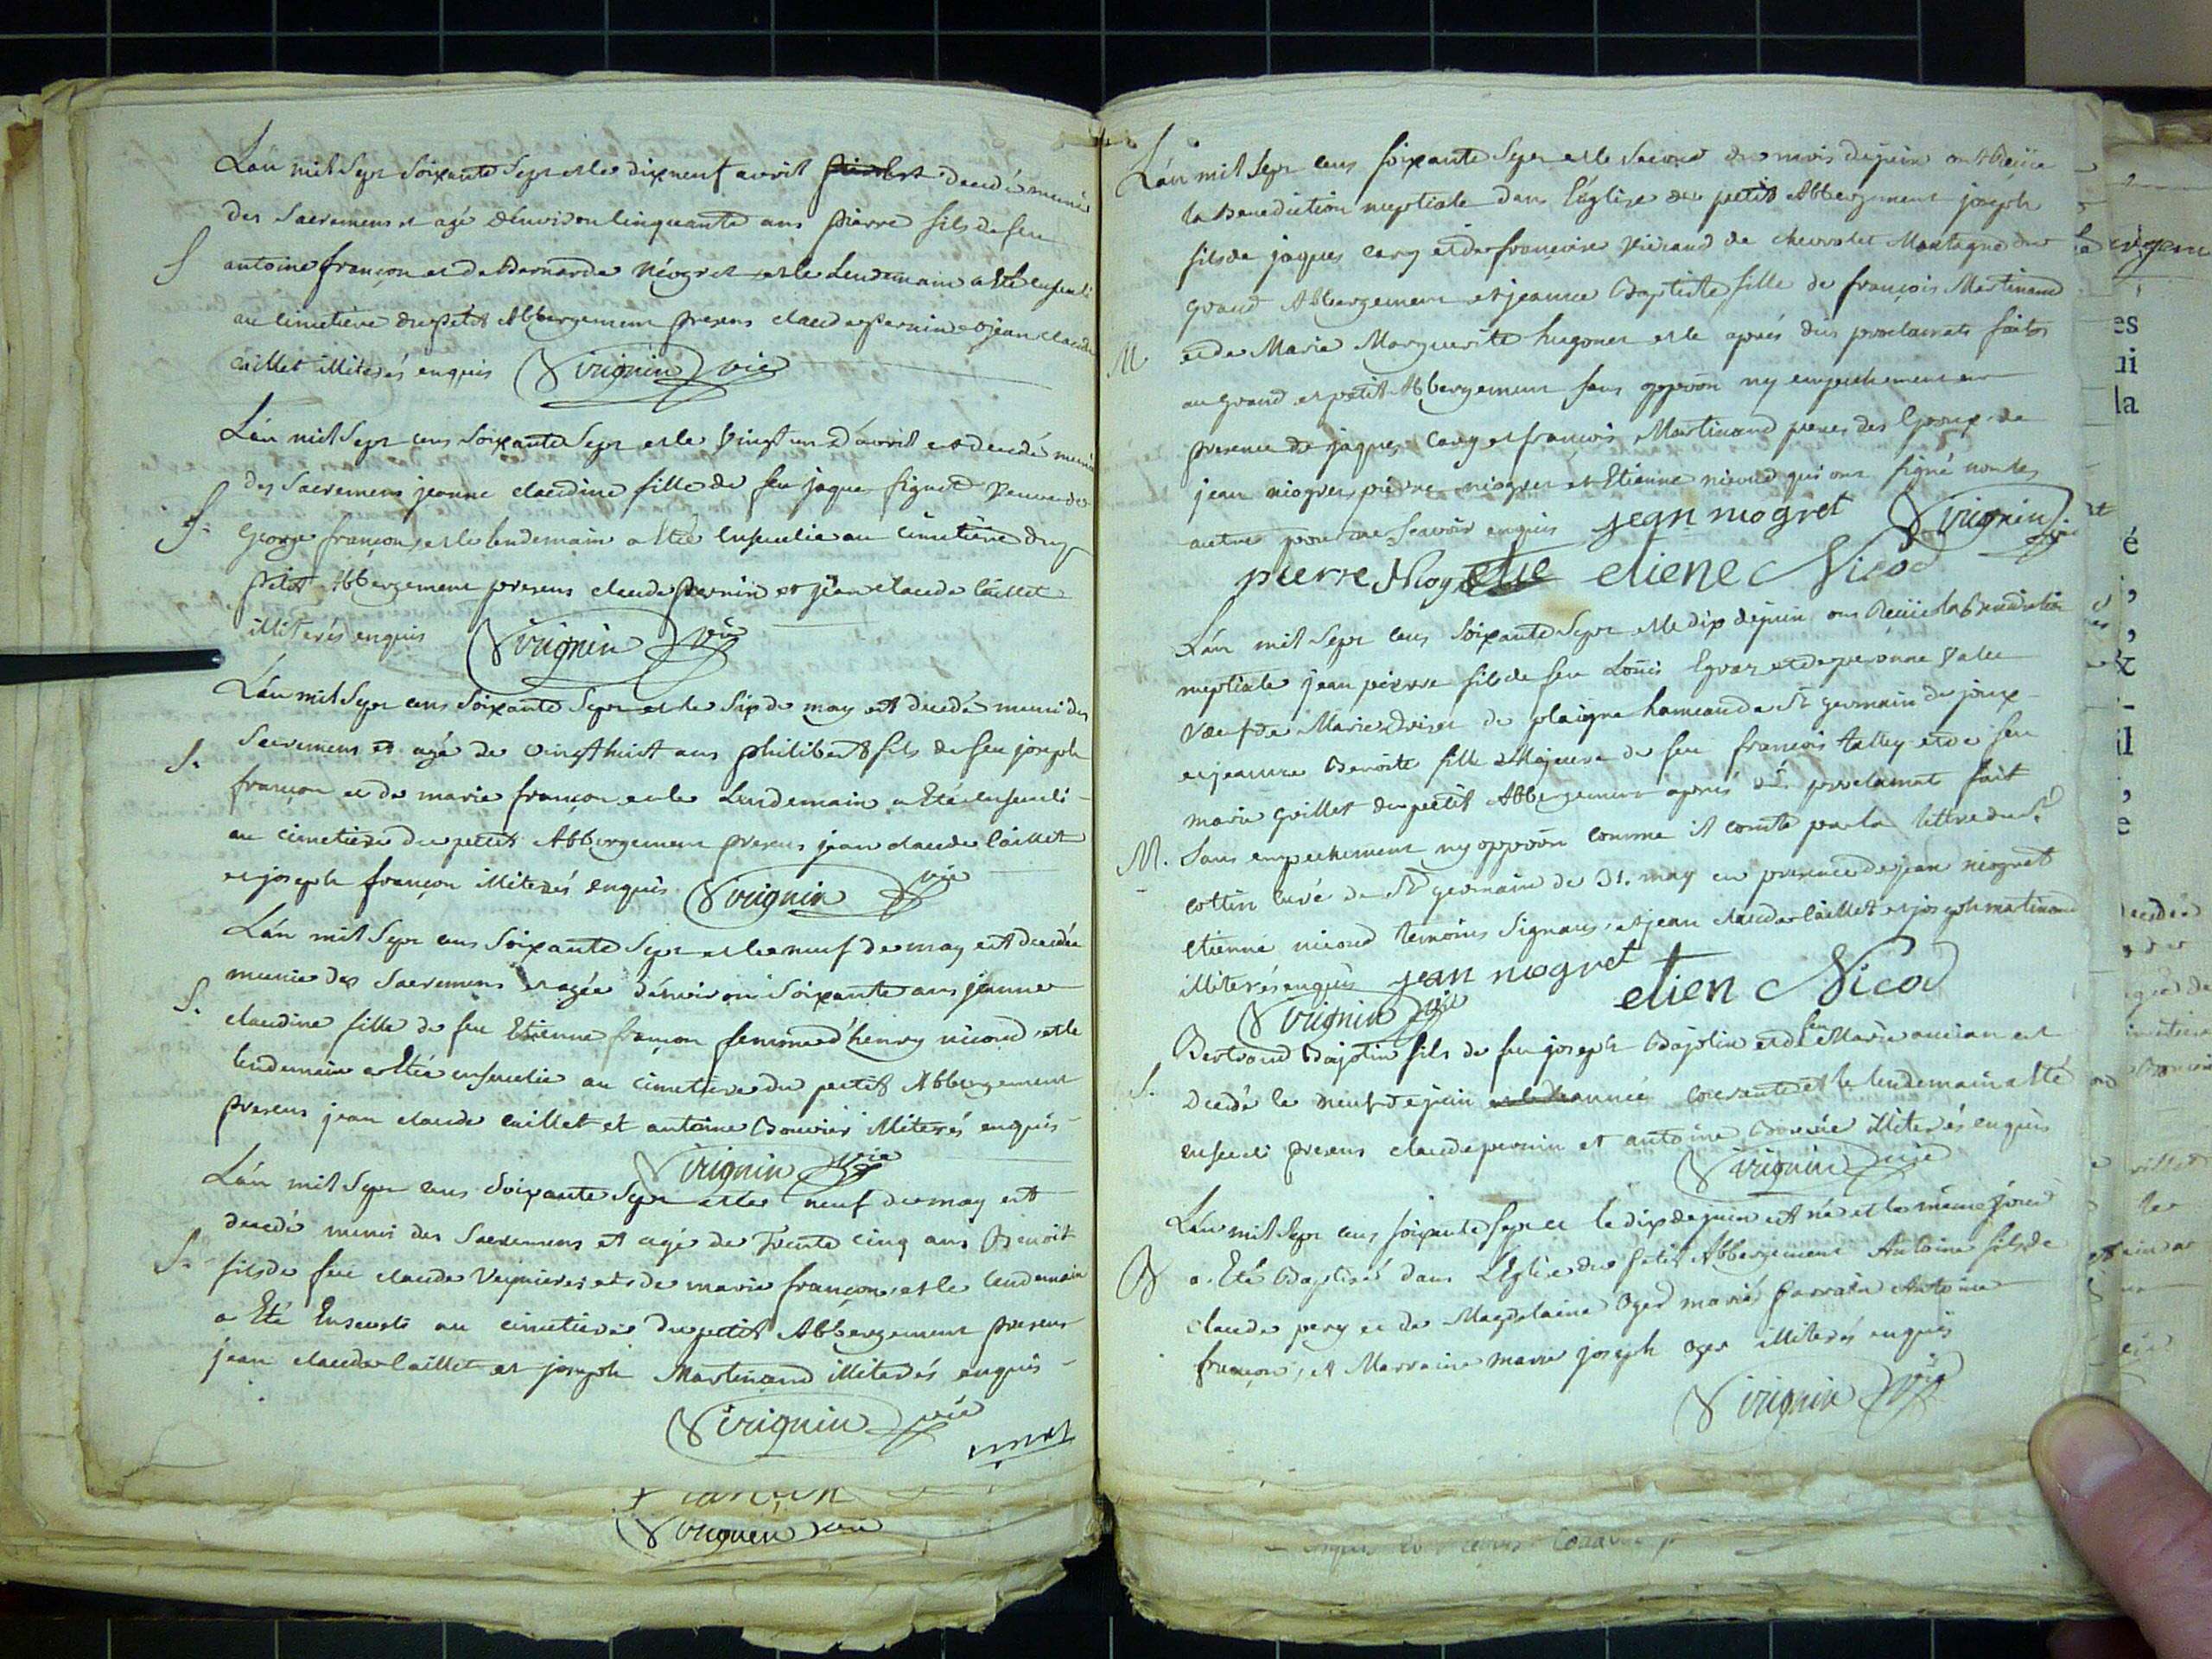 L'an mil Sept Soixante Sept et le dix neuf avril est decedé muni
des Sacremens et agé d'environ Cinquante ans pierre fils de feu
S antoine françon et de Bernarde Niogret et le Lendemain a Eté enseveli
au cimetiere du petit Abbergement presens claude pernin et jean claude
caillet illiterés enquis Virignin vic
L'an mil Sept cens Soixante Sept et le vingt un d'avril est decedé munie
des Sacremens jeanne claudine fille de feu jaque veuve de
S. George françon, et le lendemain a Eté Ensevelie au Cimetiere du
petit Abbergement presens claude pernin et jean claude Caillet
illiterés enquis Virignin vic
L'an mil Sept cens Soixante Sept et le Six de may est decedé muni des
S. Sacremens et agé de vingt huit ans philibert fils de feu joseph
françon et de marie françon et le Lendemain a Eté enseveli
au cimetiere du petit Abbergement presens jean claude Caillet
et joseph françon illiterés enquis Virignin vic
L'an mil Sept cens Soixante Sept et le neuf de may est decedée
munie des Sacremens et agée d'environ Soixante ans jeanne
S. claudine fille de feu Etienne françon femme d'henry nicoud et le
lendemain a Eté ensevelie au cimetiere du petit Abbergement
presens jean claude caillet et antoine Bouvier illiterés enquis
Virignin vic
L'an mil Sept cens Soixante Sept et le neuf de may est
decedé muni des Sacremens et agé de Trente Cinq ans Benoit
S. fils de feu claude et de marie françon, et le lendemain
a Eté Enseveli au cimetiere du petit Abbergement presens
jean claude Caillet et joseph Martinand illiterés enquis
Virignin vic
Virignin vic
L'an mil Sept cens soixante Sept et le Second du mois de juin ont Reçüe
la Benediction nuptiale dans l'église du petit Abbergement joseph
fils de jaques cary et de francoise de chevrolet Montagne du
grand Abbergement et jeanne Baptiste fille de françois Martinand
M et de Marie Marguerite hugonet et le aprés dus proclamats faits
au grand et petit Abbergement sans oppoõn ny empechement en
presence de jaques Cary et francois Martinand peres des Epoux de
jean niogret, pierre niogret et Etienne nicoud qui ont signé non les
autres pour ne scavoir enquis jean niogret Virignin vic
pierre Niogret etiene Nicod
L'an mil Sept cens Soixante Sept et le dix de juin ont Reçüe la Benediction
nuptiale jean pierre fils de feu Loüis et de peronne
veuf de Marie de plaigne hameau de St germain de joux
et jeanne Benoite fille Majeure de feu françois talley et de feu
marie grillet du petit Abbergement aprés proclamat fait
M. Sans empechement ny oppoõn comme il conste par la lettre du Sr
cottin curé de St germain du 31. may en presence de jean niogret
etienne nicoud temoins Signans, et jean claude caillet et joseph martinand
illiterés enquis jean niogret etien Nicod
Virignin vic
Bertrand Bajolin fils de feu joseph Bajolin et de feu Marie ancian est
S. decedé le neuf de juin année courante et le lendemain a Eté
enseveli presens claude pernin et antoine Bouvier illiterés enquis
Virignin vic
L'an mil Sept cens soixante sept et le dix de juin est né et le même jour
B a Eté Baptisé dans l'Eglise du petit Abbergement Antoine fils de
claude pery et de Magdelaine Oger mariés parrain Antoine
françon, et Marraine marie joseph oger illiterés enquis
Virignin vic